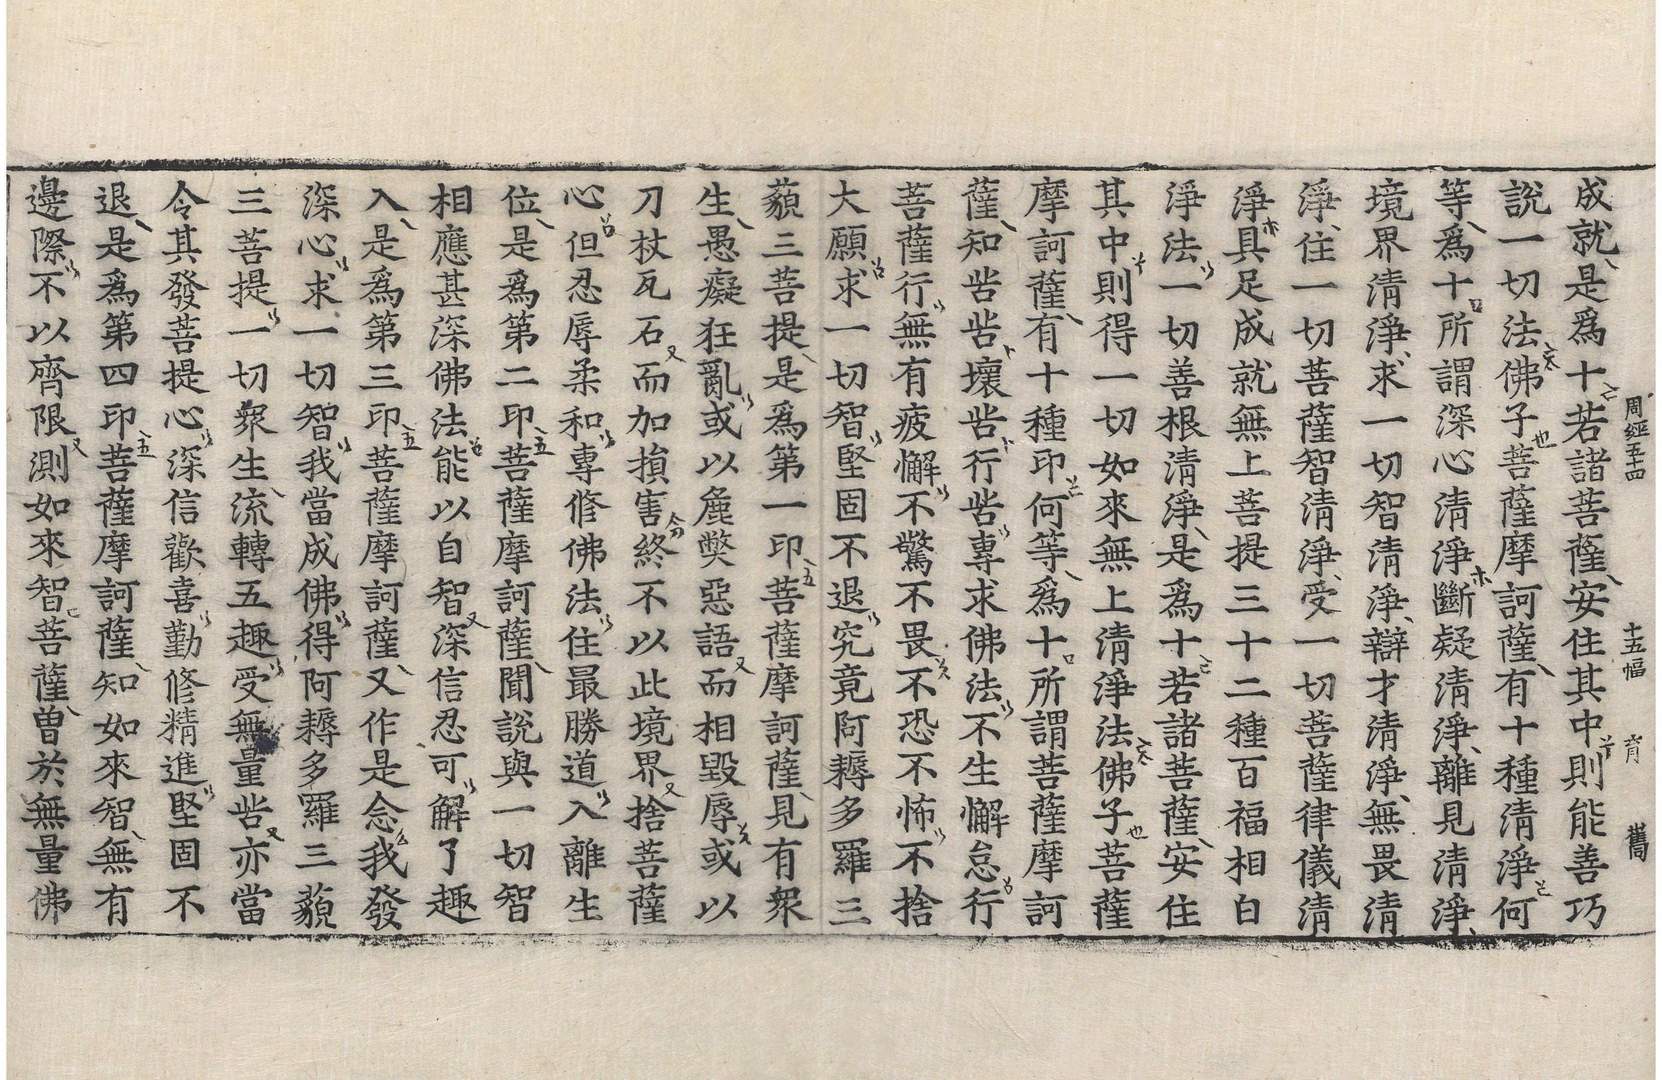 周經五十四 十五幅 背 舊
成就是爲十若諸菩薩安住其中則能善巧
說一切法佛子菩薩摩訶薩有十種清淨何
等爲十所謂深心清淨斷疑清淨離見清淨
境界清淨求一切智清淨辯才清淨無畏清
淨住一切菩薩智清淨受一切菩薩律儀清
淨具足成就無上菩提三十二種百福相白
淨法一切善根清淨是爲十若諸菩薩安住
其中則得一切如來無上清淨法佛子菩薩
摩訶薩有十種印何等爲十所謂菩薩摩訶
薩知苦苦壞苦行苦專求佛法不生懈怠行
菩薩行無有疲懈不驚不畏不恐不怖不捨
大願求一切智堅固不退究竟阿耨多羅三
藐三菩提是爲第一印菩薩摩訶薩見有衆
生愚癡狂亂或以麁弊惡語而相毀辱或以
刀杖瓦石而加損害終不以此境界捨菩薩
心但忍辱柔和專修佛法住最勝道入離生
位是爲第二印菩薩摩訶薩聞說與一切智
相應甚深佛法能以自智深信忍可解了趣
入是爲第三印菩薩摩訶薩又作是念我發
深心求一切智我當成佛得阿耨多羅三藐
三菩提一切衆生流轉五趣受無量苦亦當
令其發菩提心深信歡喜勤修精進堅固不
退是爲第四印菩薩摩訶薩知如來智無有
邊際不以齊限測如來智菩薩曾於無量佛